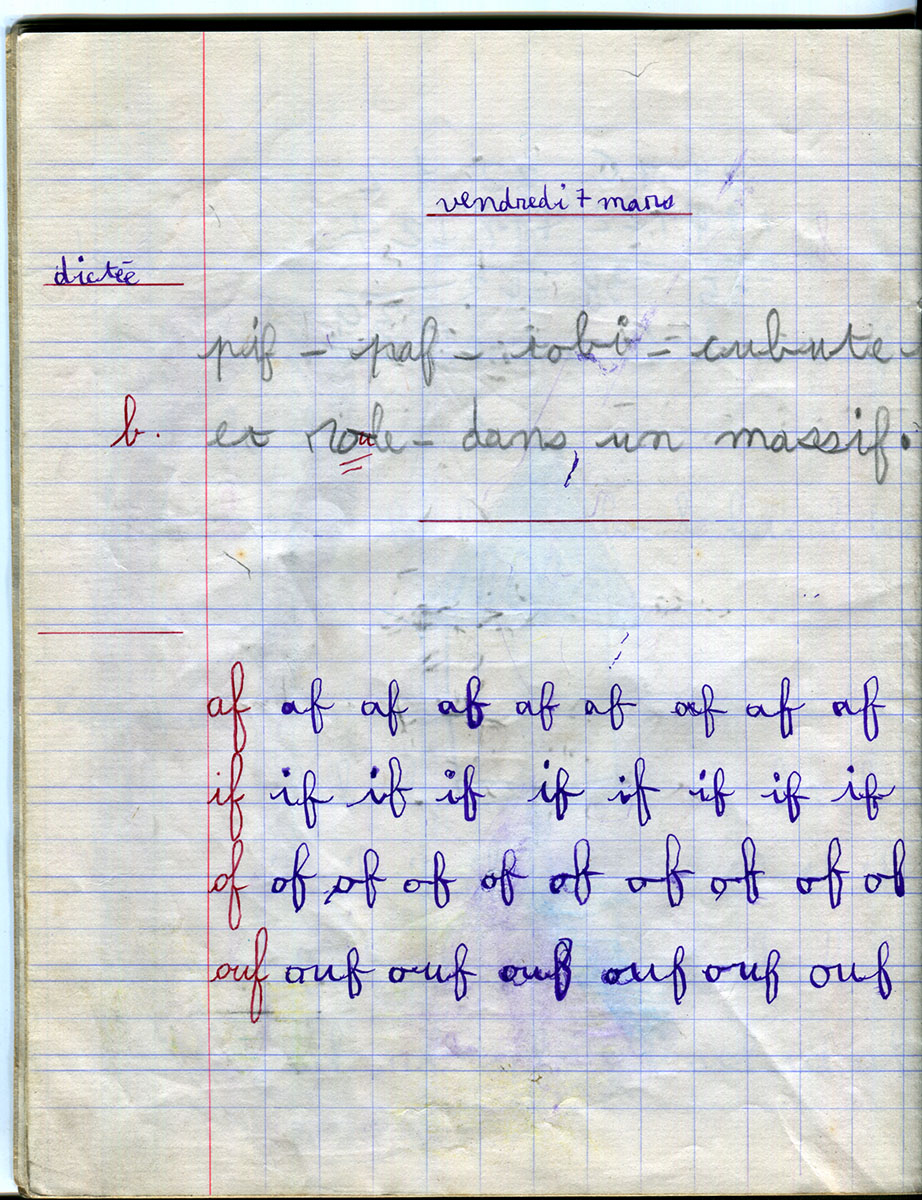 vendredi 7 mars
dictée
pif - paf - tobi - cubute
b. et roule - dans un massif.
af af af af af af af af af
if if if if if if if if if
of of of of of of of of of of
ouf ouf ouf ouf ouf ouf ouf